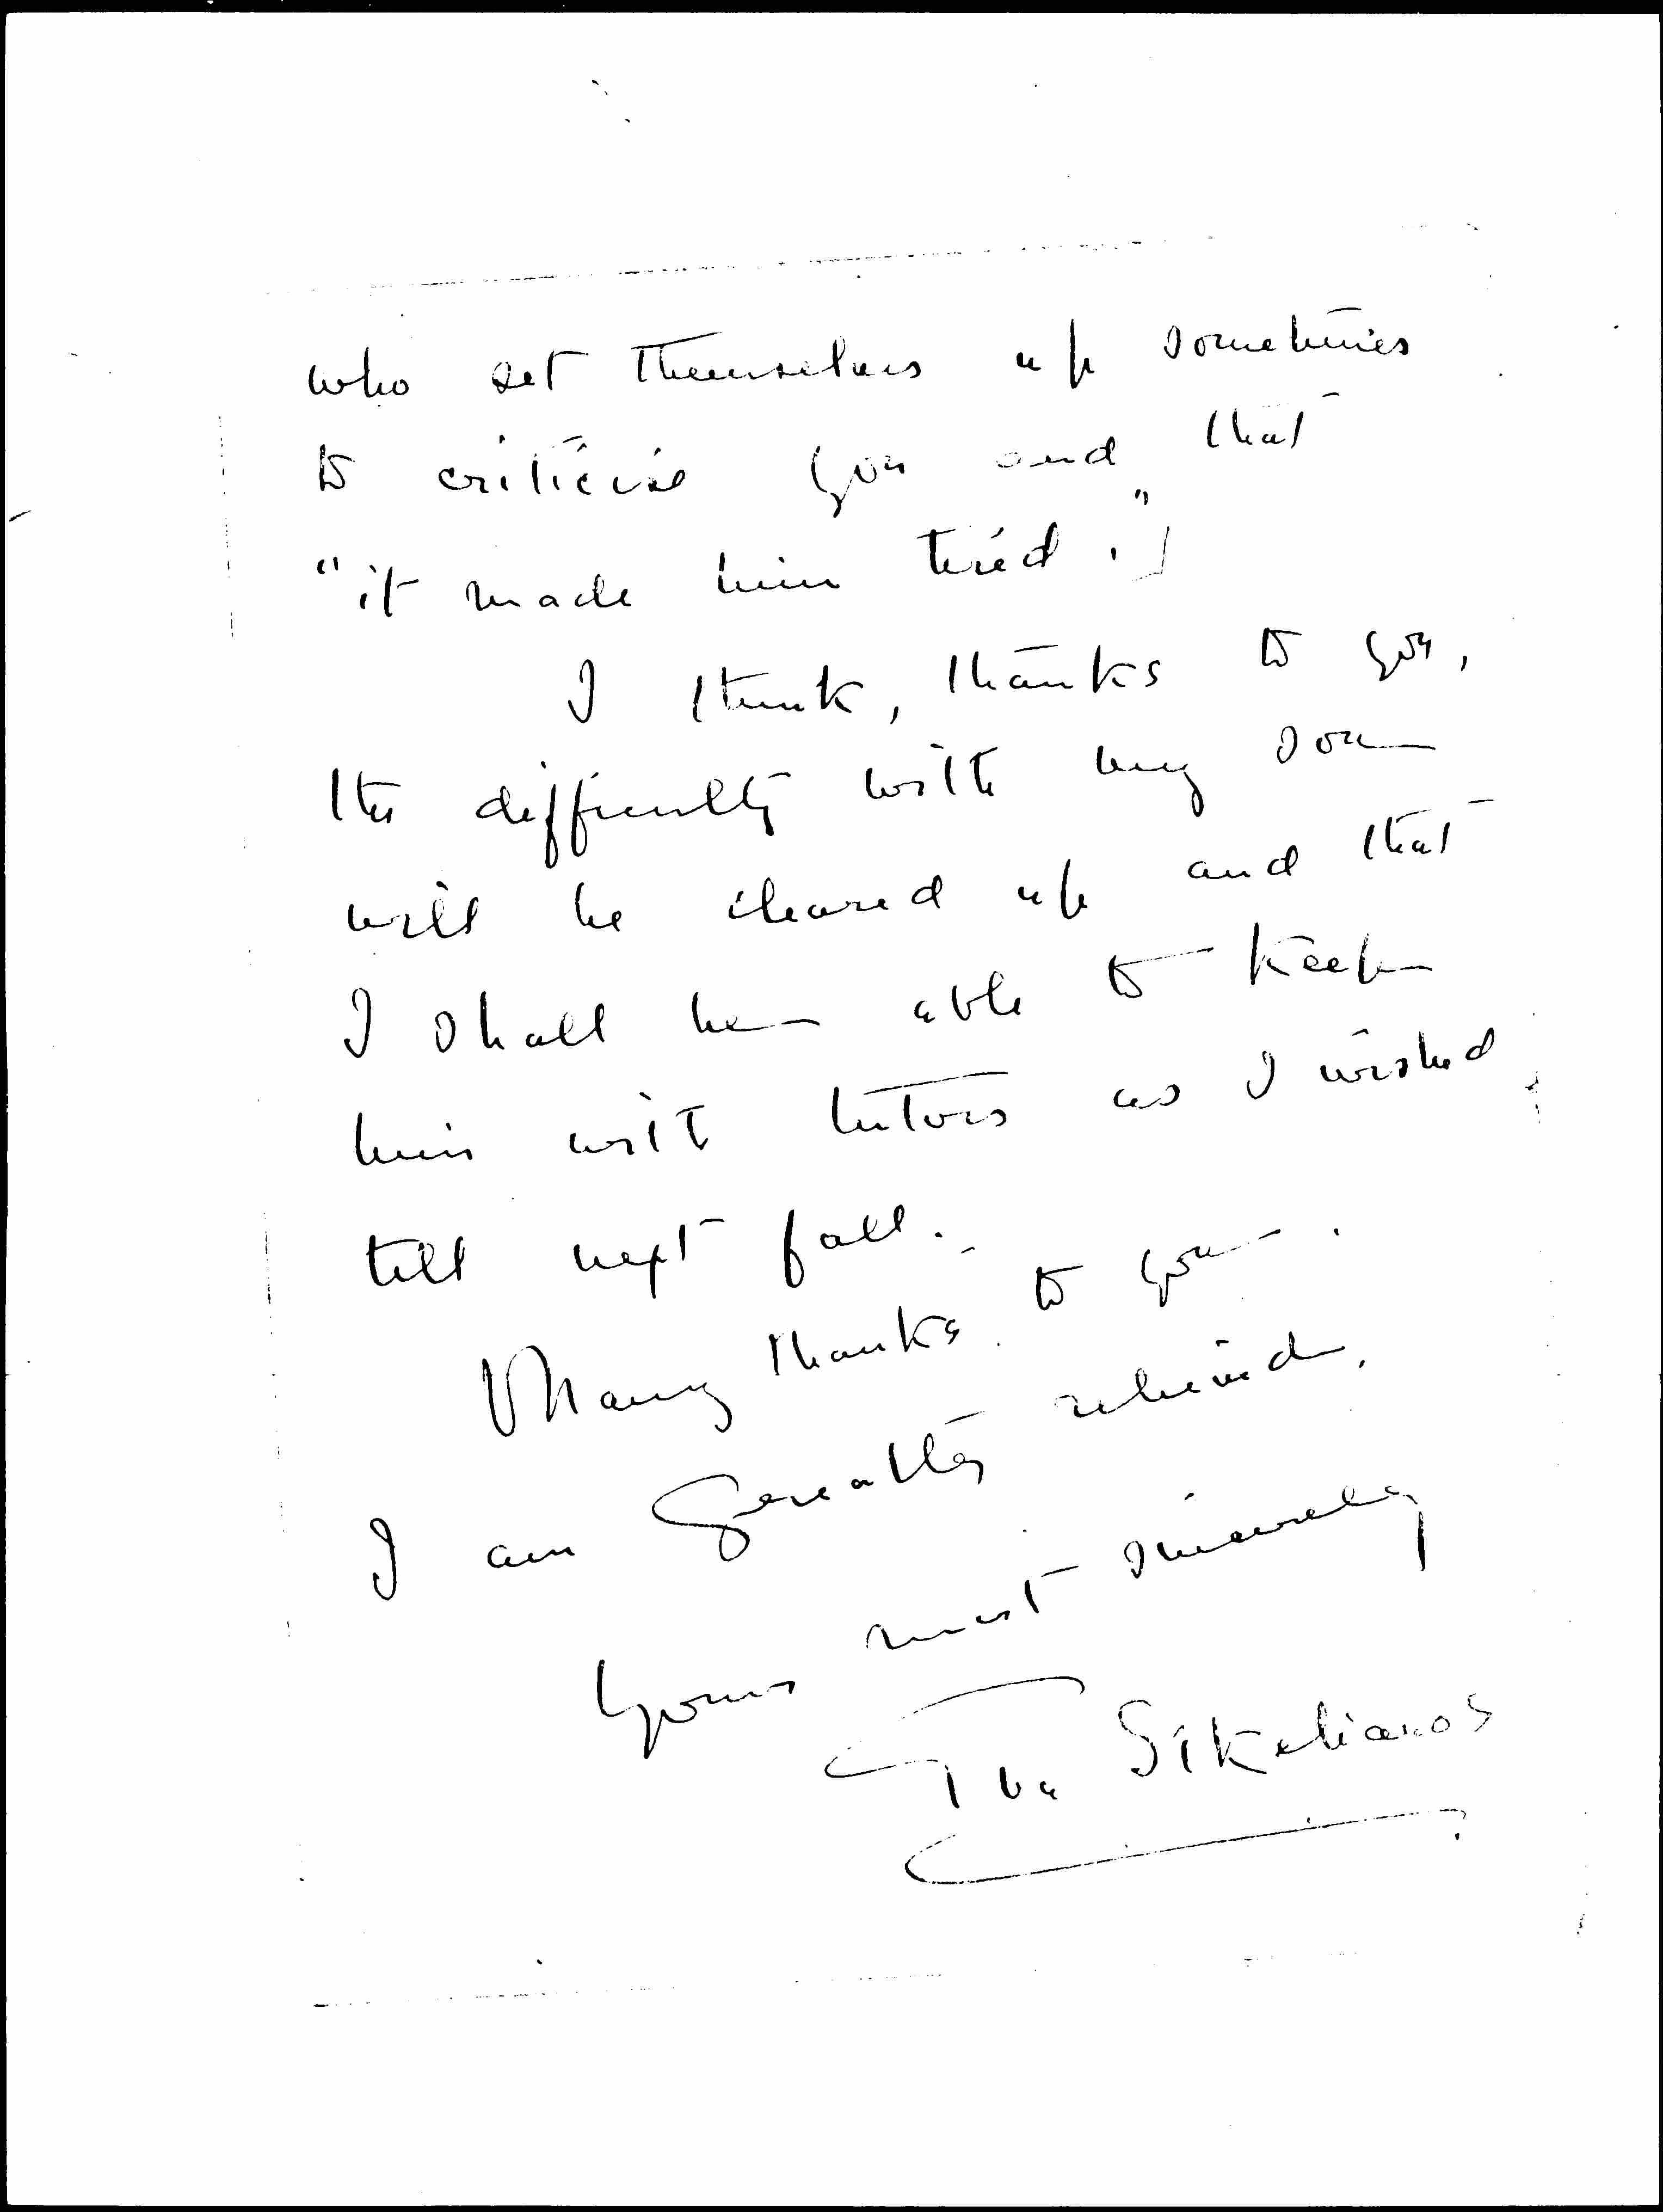 who set themselves up sometimes
to criticise you and that
"it made him tired."]
I think, thanks to you,
the difficulty with my son
will be cleared up and that
I shall be able to keep
him with tutors as I wished
till next fall.
Many thanks to you.
I am greatly relieved.
Yours most sincerely
Eva Sikelianos